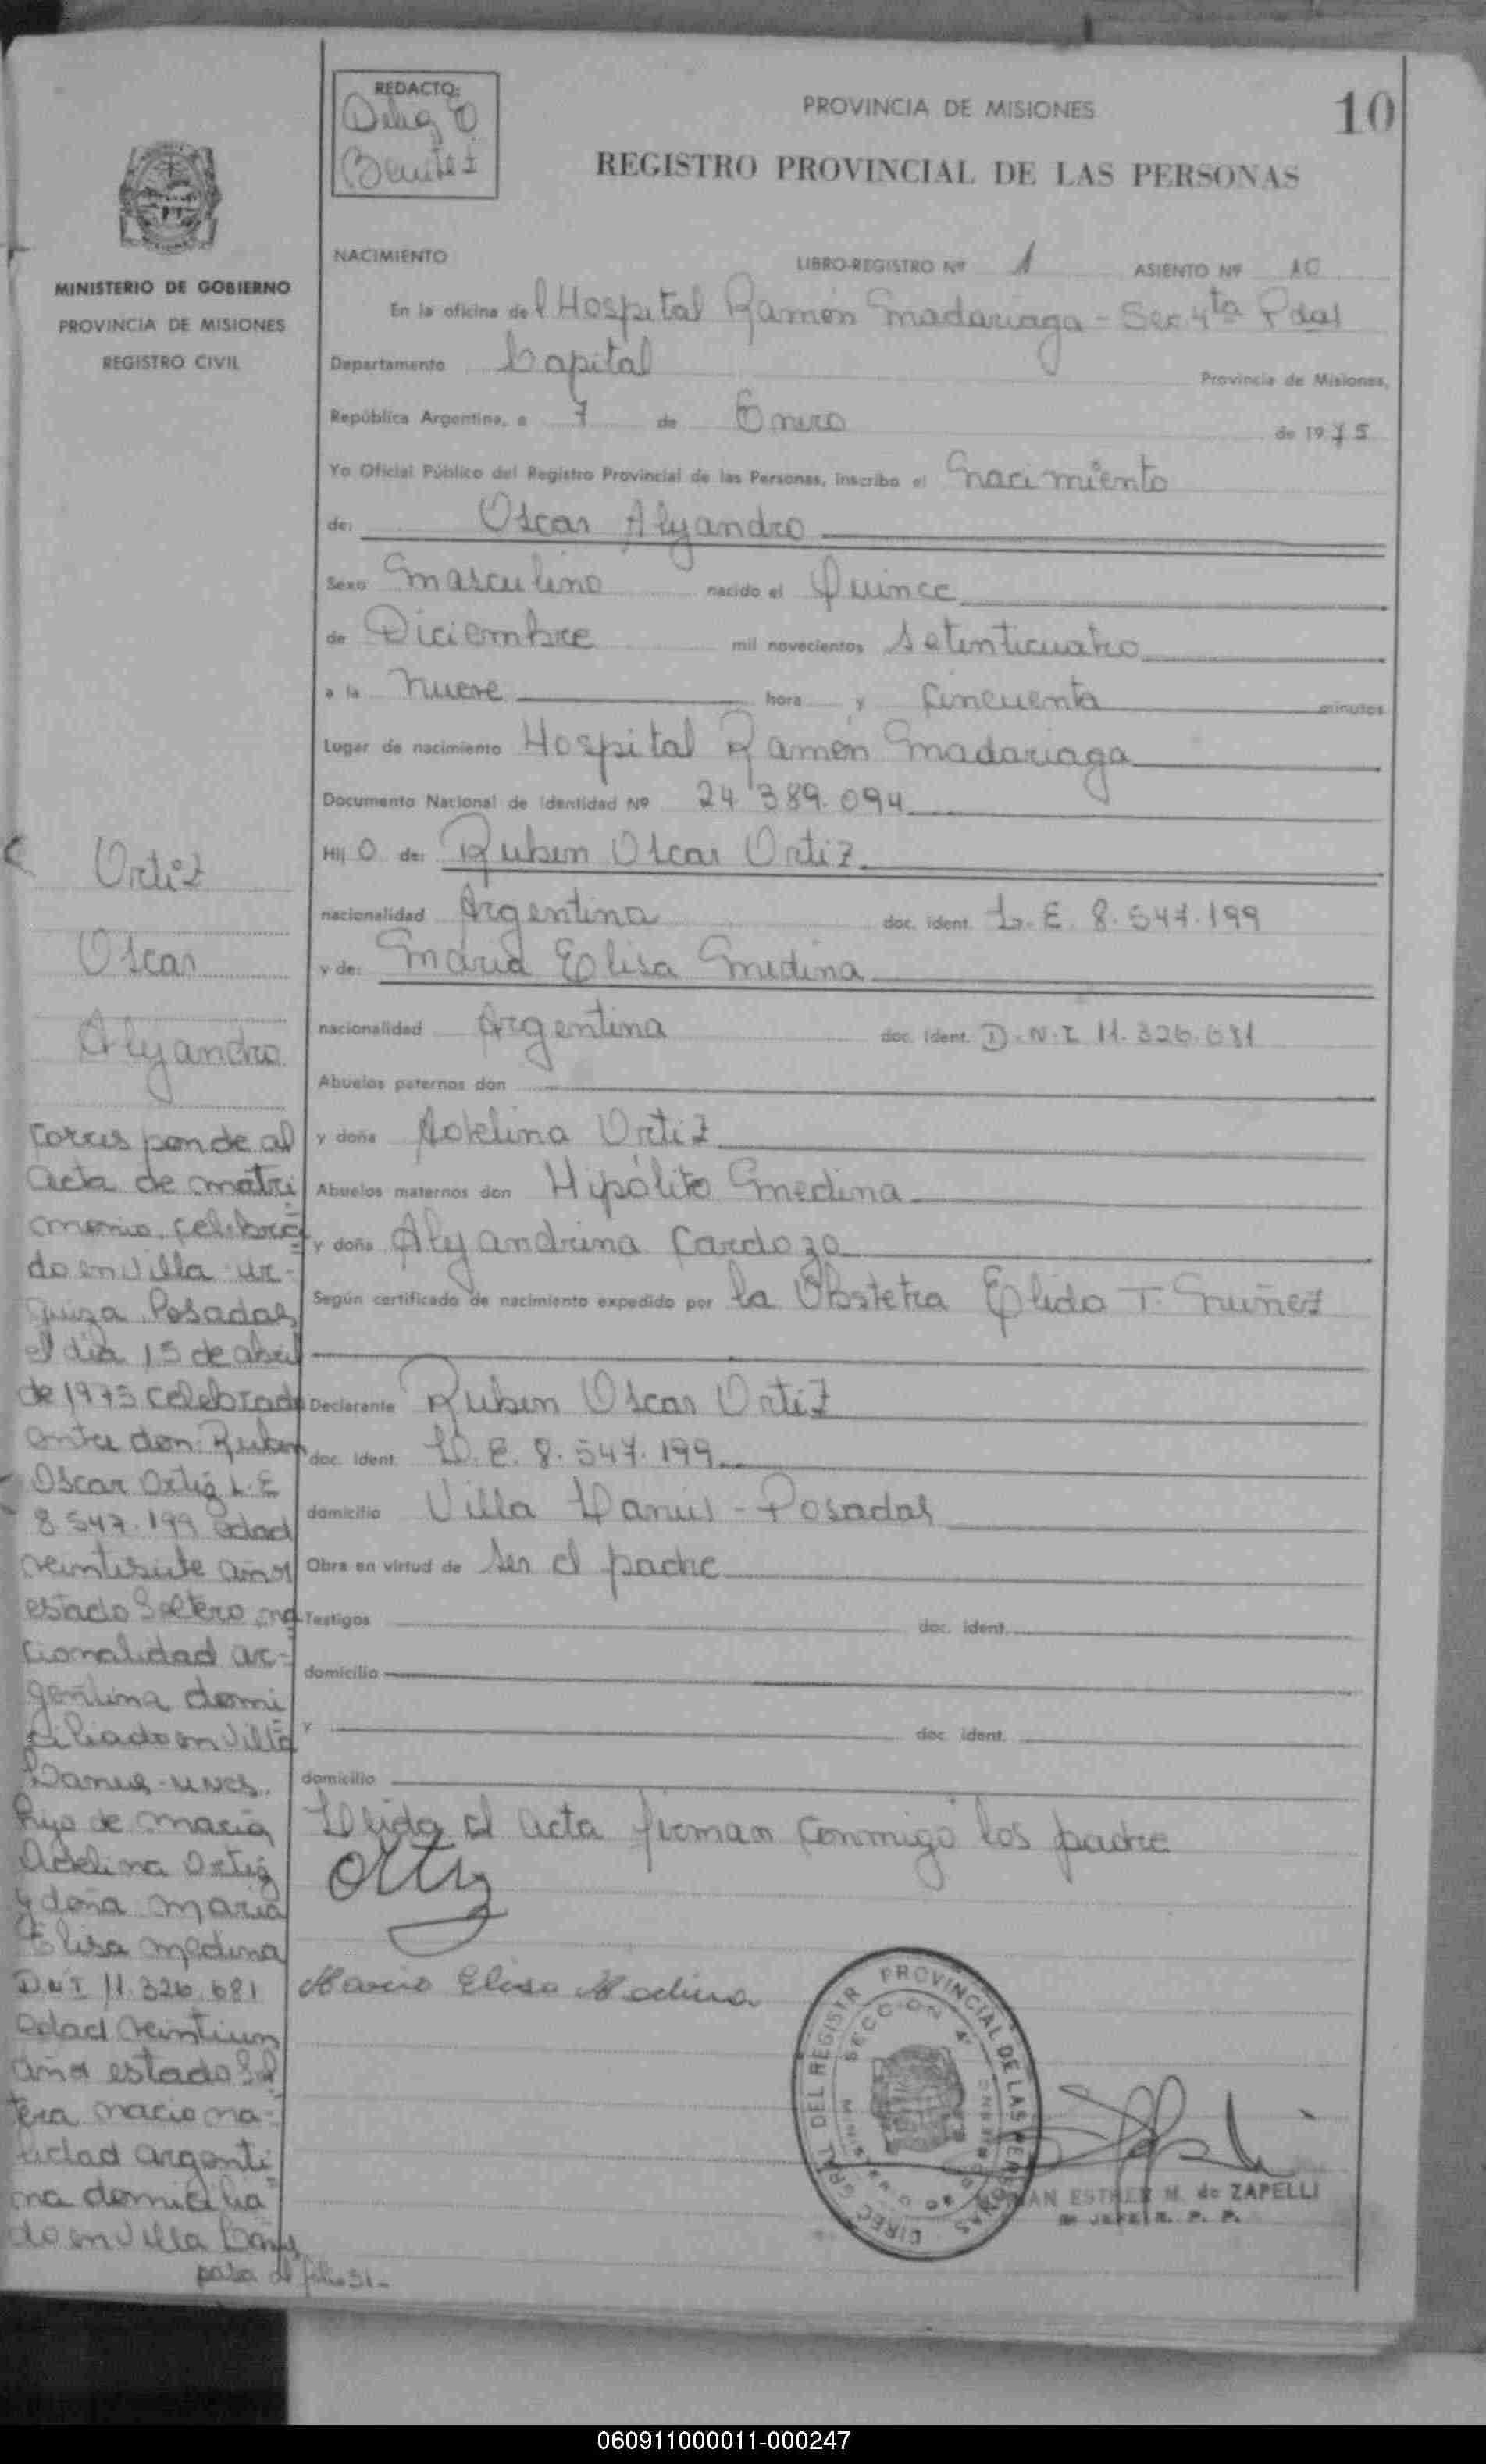 REDACTO:
Benitez
PROVINCIA DE MISIONES
10
REGISTRO PROVINCIAL DE LAS PERSONAS
MINISTERIO DE GOBIERNO
PROVINCIA DE MISIONES
REGISTRO CIVIL
NACIMIENTO
LIBRO-REGISTRO Nº 1 ASIENTO Nº 10
En la oficina del Hospital Ramón Madariaga - Sec 4ta Pdas
Departamento Capital Provincia de Misiones,
República Argentina, a 7 de Enero de 1975
Yo Oficial Público del Registro Provincial de las Personas, inscribo el nacimiento
de: Oscar Alejandro
Sexo masculino nacido el Quince
de Diciembre mil novecientos setenticuatro
a la nueve hora y cincuenta minutos
Lugar de nacimiento Hospital Ramón Madariaga
Documento Nacional de Identidad Nº 24.389.094
Hijo de: Ruben Oscar Ortiz
nacionalidad Argentina doc. ident. L. E. 8.547.199
y de: Maria Elisa Medina
nacionalidad Argentina doc. ident. D.N.I 11.326.681
Abuelos paternos don
y doña Adelina Ortiz
Abuelos maternos don Hipólito Medina
y doña Alejandrina Cardozo
Según certificado de nacimiento expedido por la Obstetra Elida T. Nuñez
Declarante Ruben Oscar Ortiz
doc. ident. L. E. 8.547.199
domicilio Villa Lanús - Posadas
Obra en virtud de ser el padre
Testigos doc. ident.
domicilio
y doc. ident.
domicilio
Leida el acta firman conmigo los padre
Ortiz
Maria Elisa Medina
DIREC. GRAL. DEL REGISTR PROVINCIAL DE LAS PERSONAS
SECCION 4ª
ESTHER M. de ZAPELLI
JEFE R. P. P.
Ortiz
Oscar
Alejandro
Corresponde al
acta de matri
monio celebra
do en Villa Ur-
quiza Posadas
el dia 15 de abril
de 1975 celebrado
entre don Ruben
Oscar Ortiz L.E
8.547.199 edad
veintisiete años
estado Soltero na
cionalidad ar-
gentina domi
ciliado en Villa
Lanus
hijo de maria
Adelina Ortiz
y doña maria
Elisa medina
DNI 11.326.681
edad veintiun
años estado Sol
tera naciona-
lidad argenti
na domicilia
do en Villa Lanus
pasa al folio 31-
060911000011-000247